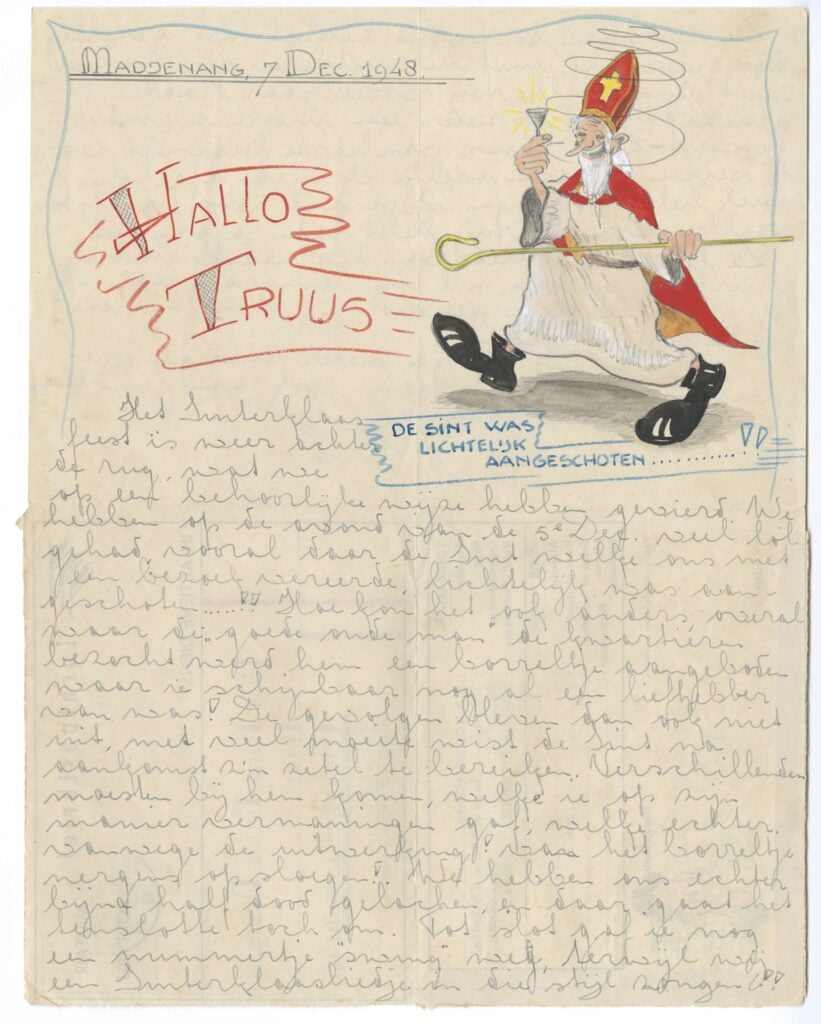 MADJENANG, 7 DEC. 1948.
HALLO
TRUUS
DE SINT WAS
LICHTELIJK
AANGESCHOTEN...........!!
Het Sinterklaas
feest is weer achter
de rug, wat we
op een behoorlijke wijze hebben gevierd. We
hebben op de avond van de 5e Dec. veel lol
gehad vooral daar de Sint welke ons met
een bezoek vereerde, lichtelijk was aan-
geschoten......!! Hoe kon het ook anders, overal
waar de "goede oude man" de kwartieren
bezocht werd hem een borreltje aangeboden
waar ie schijnbaar nog al een liefhebber
van was! De gevolgen bleven dan ook niet
uit, met veel moeite wist de Sint na
aankomst z'n zetel te bereiken. Verschillenden
moesten bij hem komen, welke ie op zijn
manier vermaningen gaf, welke echter
vanwege de uitwerking van het borreltje
nergens op sloegen! We hebben ons echter
bijna half dood gelachen, en daar gaat het
tenslotte toch om. Tot slot gaf ie nog
een nummertje "swing" weg, terwijl wij
een Sinterklaasliedje in die stijl zongen!!